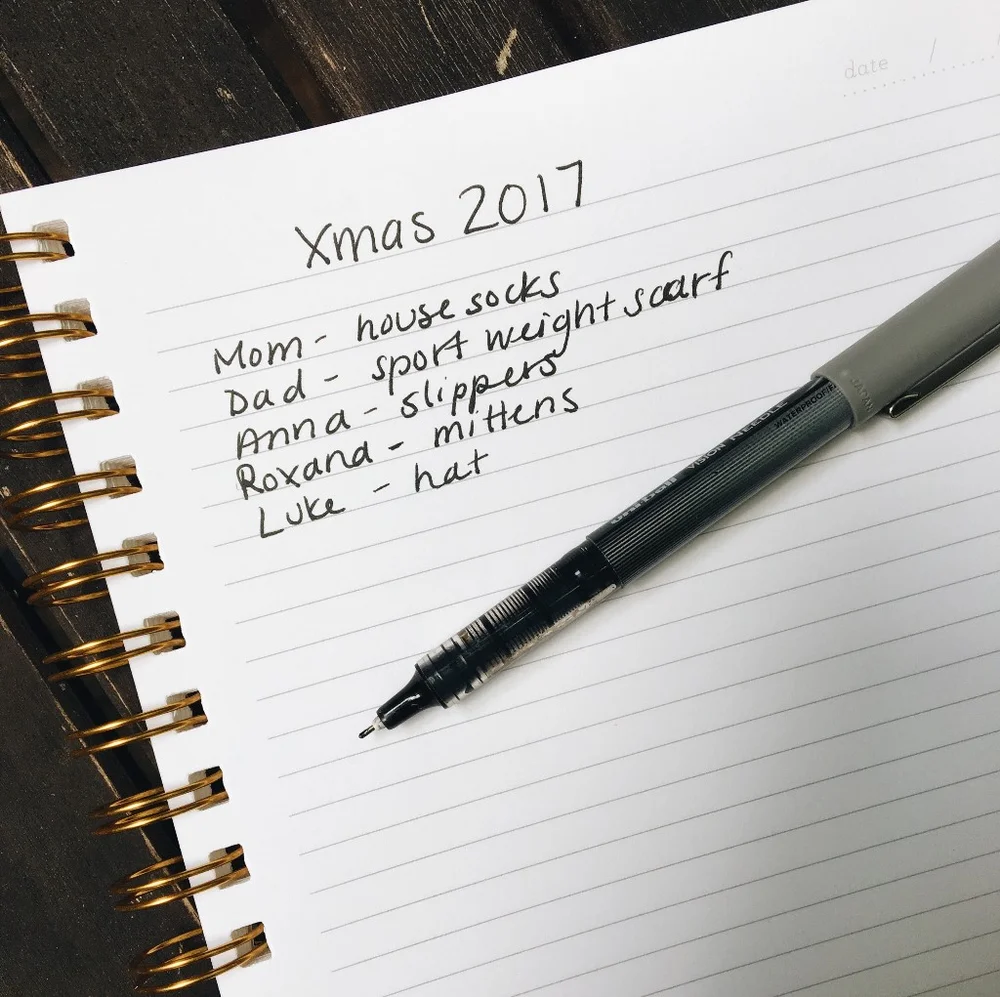 date / /
Xmas 2017
Mom - house socks
Dad - sport weight scarf
Anna - slippers
Roxana - mittens
Luke - hat
JAPAN
uni-ball VISION NEEDLE
WATERPROOF